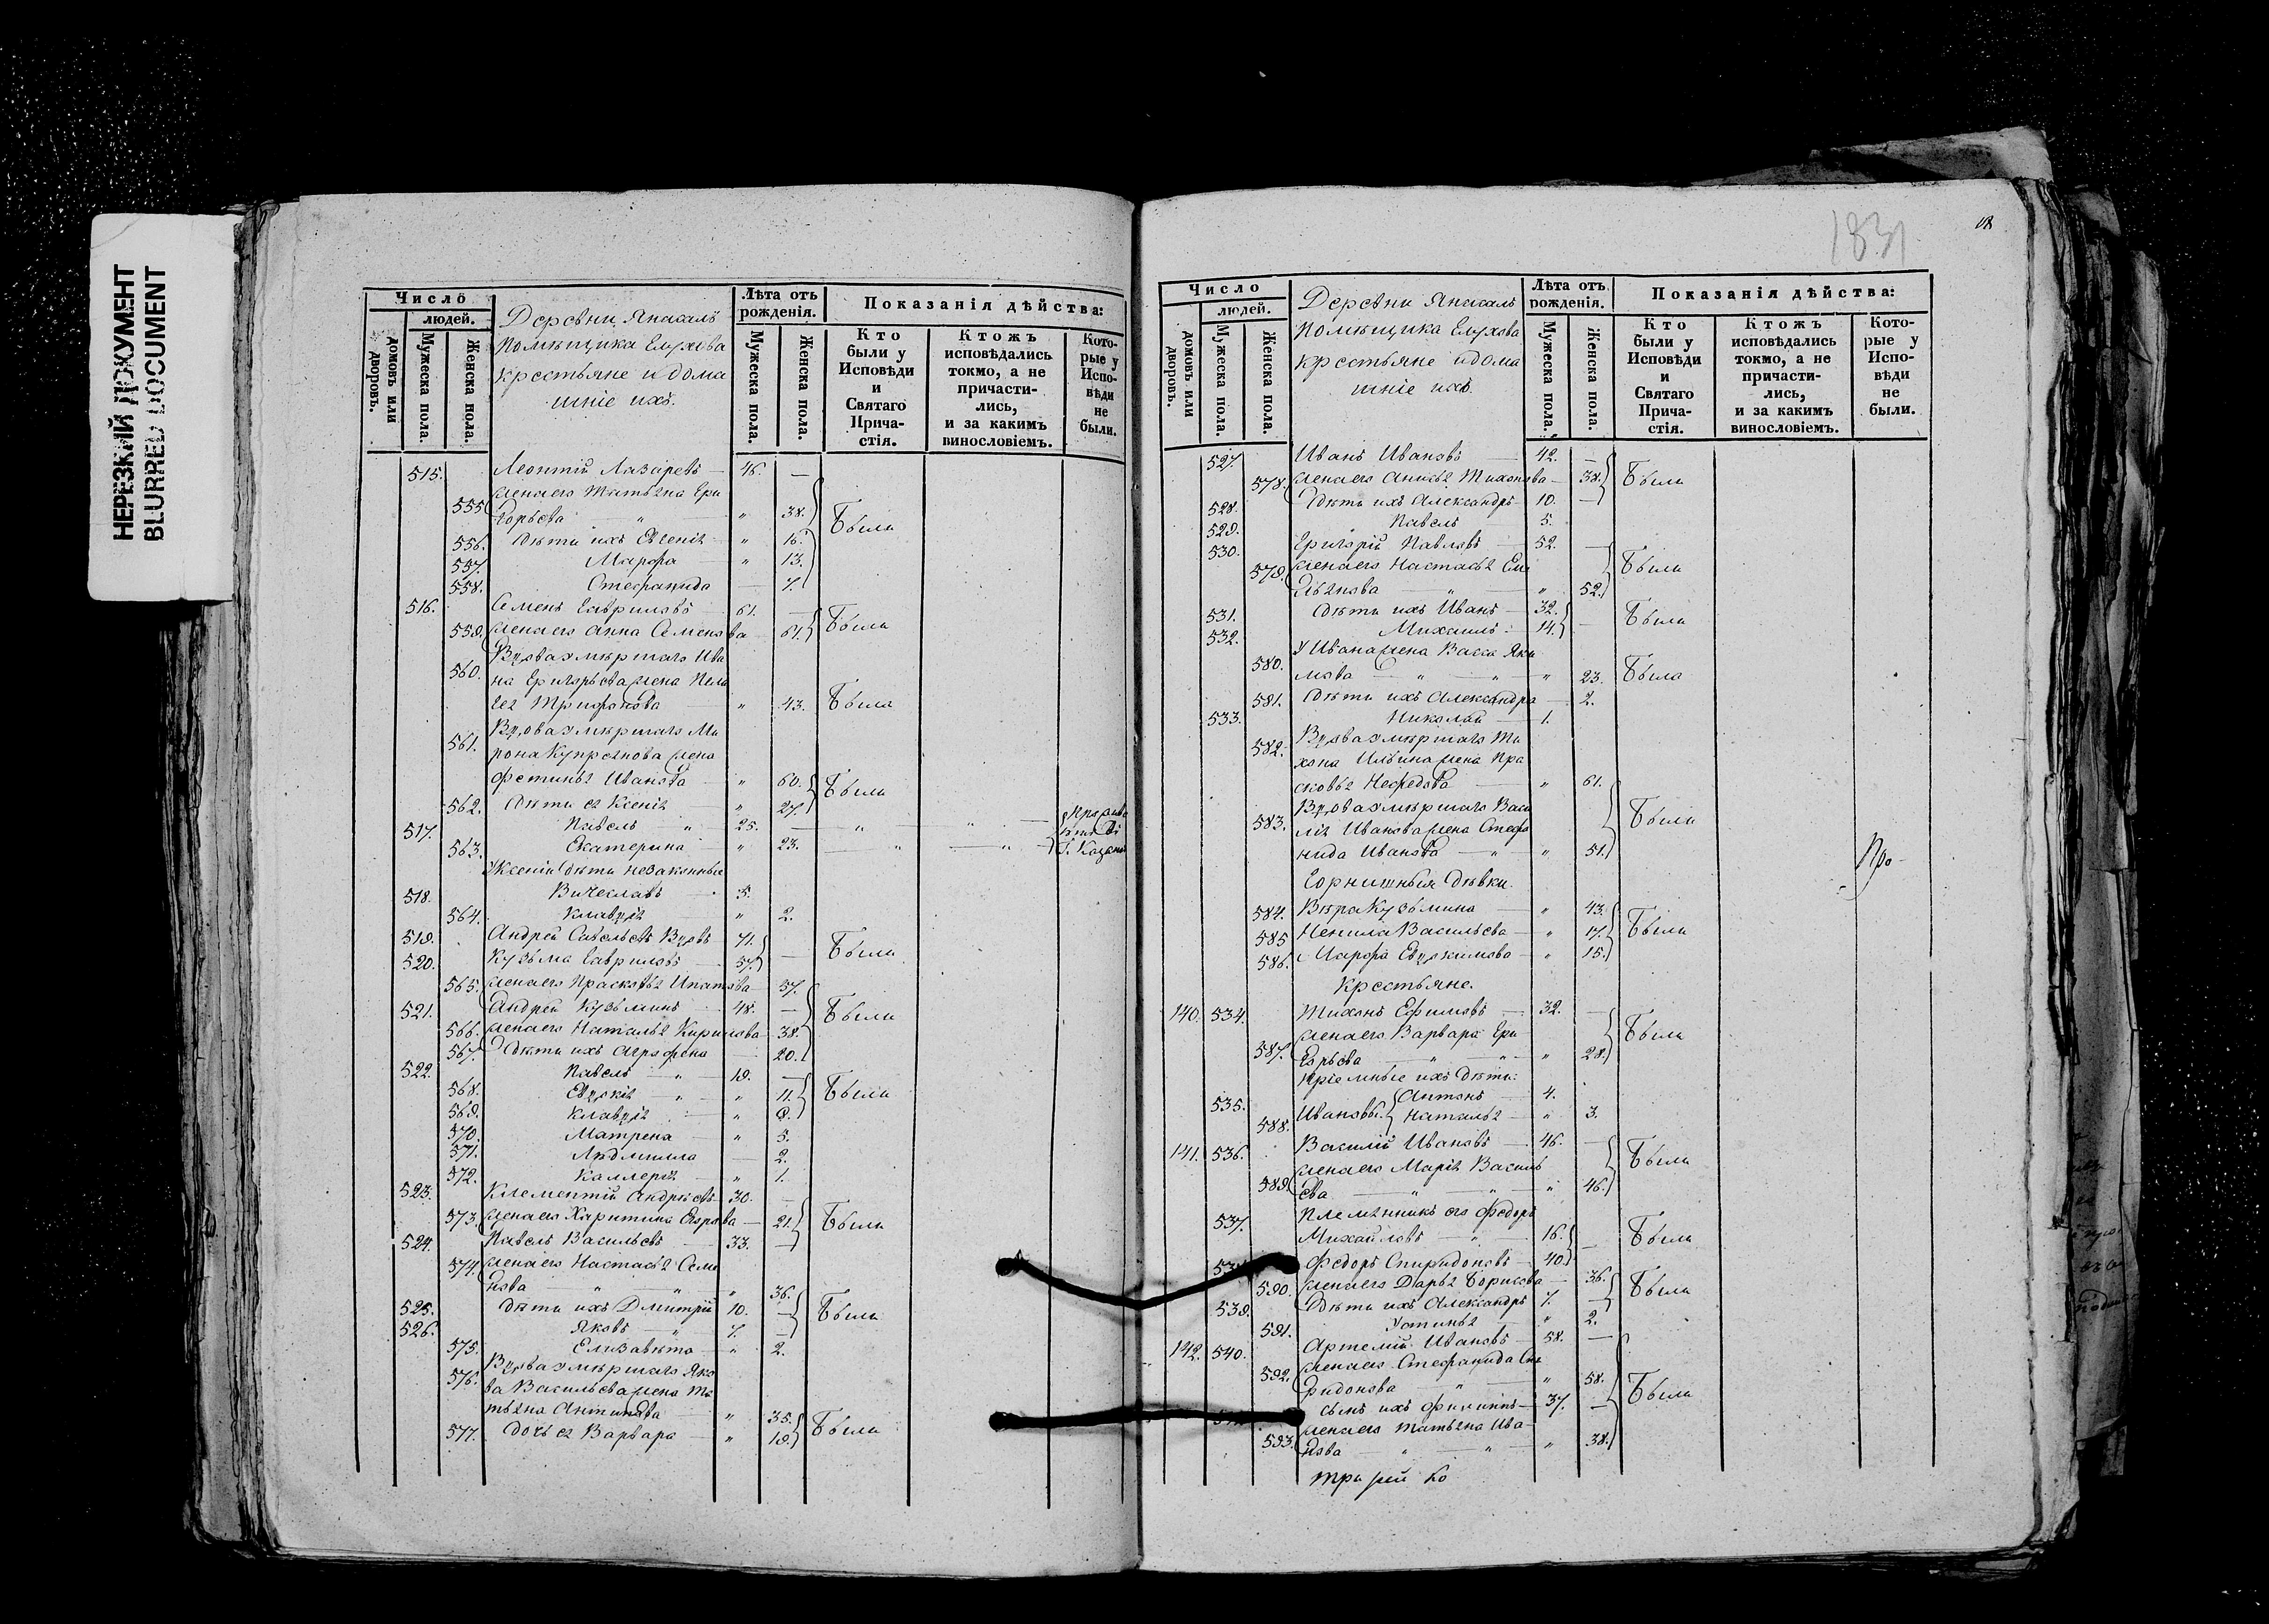 НЕРЕЗКИЙ ДОКУМЕНТ
BLURRED DOCUMENT
Число
людей.
домовъ или дворовъ.
Мужеска пола.
Женска пола.
Деревни Янасалъ
Помѣщика Елухова
крестьяне и дома
шніе ихъ.
Лѣта отъ рожденія.
Мужеска пола.
Женска пола.
Показанія дѣйства:
Кто были у Исповѣди и Святаго Прича-стія.
Ктожъ исповѣдались токмо, а не причасти-лись, и за какимъ винословіемъ.
Кото-рые у Испо-вѣди не были.
515. Леонтій Лазаревъ — 46. —
жена его Татьяна Гри
555. горьева " — " 38. Были
556. Дѣти ихъ Евгенія — " 16.
557. Марфа — " 13.
558. Стефанида — 7.
516. Семенъ Гавриловъ 61. —
559. жена его Анна Семенова 61. Были
Вдова умершаго Ива
560. на Григорьева жена Пела
гея Трифонова — " 43. Была
Вдова умершаго Ми
561. рона Купреянова жена
Фетинья Иванова — " 60. Были
562. Дѣти ея Ксенія — " 27.
517. Павелъ " 25. — " — " —
563. Екатерина — " 23. — " — " — г. Казани
У Ксеніи дѣти незаконные
518. Вичеславъ — 5.
564. Клавдія " 2.
519. Андрей Савельевъ Вдовъ 71.
520. Кузьма Гавриловъ — 57. — Были
565. жена его Прасковья Ипатова 57.
521. Андрей Кузьминъ — 48. — Были
566. жена его Наталья Кирилова — 38.
567. Дѣти ихъ Аграфена — 20.
522. Павелъ — " — 19. —
568. Евдокія — " — " 11. Были
569. Клавдія — " 9.
570. Матрена — " 5.
571. Людмилла — 2.
572. Каллерія — " 1.
523. Клементій Андреевъ 30. —
573. жена его Харитина Егорова — 21. Были
524. Павелъ Васильевъ — 33. —
574. жена его Настасья Семе
нова — " — " — " 36.
525. Дѣти ихъ Дмитрій 10. — Были
526. Яковъ — " — 7. —
575. Елизавета — " 2.
Вдова умершаго Яко
576. ва Васильева жена Та
тьяна Антипова — " 35. Были
577. Дочь ея Варвара — " 19.
1831
Число
людей.
домовъ или дворовъ.
Мужеска пола.
Женска пола.
Деревни Янасалъ
Помѣщика Елухова
крестьяне и дома
шніе ихъ.
Лѣта отъ рожденія.
Мужеска пола.
Женска пола.
Показанія дѣйства:
Кто были у Исповѣди и Святаго Прича-стія.
Ктожъ исповѣдались токмо, а не причасти-лись, и за какимъ винословіемъ.
Кото-рые у Испо-вѣди не были.
527. Иванъ Ивановъ — 42. —
578. жена его Анисья Тихонова — 38. Были
528. Дѣти ихъ Александръ 10. —
529. Павелъ 5.
530. Григорій Павловъ — 52. —
579. жена его Настасья Еме Были
льянова — " — " 52.
531. Дѣти ихъ Иванъ — 32.
532. Михаилъ — 14. — Были
У Ивана жена Васса Яки
580. мова — " — " — " 23. Была
581. Дѣти ихъ Александра 2.
533. Николай — 1.
582. Вдова умершаго Ти
хона Ильина жена Пра
сковья Нефедова — " 61.
Вдова умершаго Васи
583. лія Иванова жена Стефа Были
нида Иванова — " — " 51.
Горнишныя дѣвки.
584. Вѣра Кузьмина — " 43.
585 Ненила Васильева — " 17. Были
586. Марфа Евдокимова — " 15.
Про-
Крестьяне.
140. 534. Тихонъ Ефимовъ — 32. —
жена его Варвара Гри Были
587. горьева — " — " — " 28.
Пріемные ихъ дѣти:
535. Антонъ — 4.
588. Ивановы. Наталья — " 3.
141. 536. Василій Ивановъ — 46. —
жена его Марія Василь Были
589. ева — " — " — " 46.
537. Племянникъ его Федоръ
Михайловъ — " — 16. — Были
Федоръ Спиридоновъ — 40.
590. жена его Дарья Борисова — 36. Были
539. Дѣти ихъ Александръ 7. —
591. Устинья — " 2.
142. 540. Артемій Ивановъ — 58. —
592. жена его Стефанида Спи
ридонова — " — " 58. Были
сынъ ихъ Филиппъ — 37. —
жена его Татьяна Ива
593. нова — " — " — " 38.